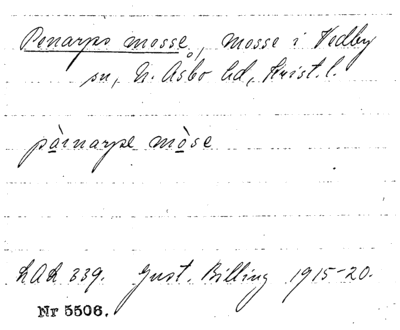 Penarps mosse, mosse i Vedby
sn, N. Åsbo hd, Krist. l.
pàinarpe mòse
LAL 339. Gust. Billing 1915-20.
Nr 5506.